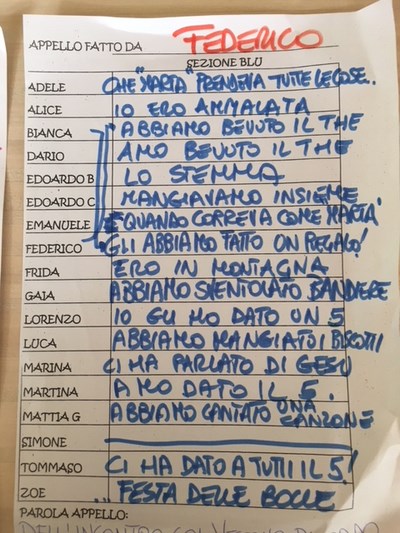 APPELLO FATTO DA FEDERICO
SEZIONE BLU
ADELE CHE "MARTA" PRENDEVA TUTTE LE COSE.
ALICE IO ERO AMMALATA
BIANCA ABBIAMO BEVUTO IL THE
DARIO AMO BEVUTO IL THE
EDOARDO B LO STEMMA
EDOARDO C MANGIAVAMO INSIEME
EMANUELE E QUANDO CORREVA COME MARTA
FEDERICO GLI ABBIAMO FATTO UN REGALO!
FRIDA ERO IN MONTAGNA
GAIA ABBIAMO SVENTOLATO BANDIERE
LORENZO IO GLI HO DATO UN 5
LUCA ABBIAMO MANGIATO I BISCOTTI
MARINA CI HA PARLATO DI GESU
MARTINA AMO DATO IL 5.
MATTIA G ABBIAMO CANTATO UNA CANZONE
SIMONE
TOMMASO CI HA DATO A TUTTI IL 5!
ZOE ... FESTA DELLE BOCCE
PAROLA APPELLO: